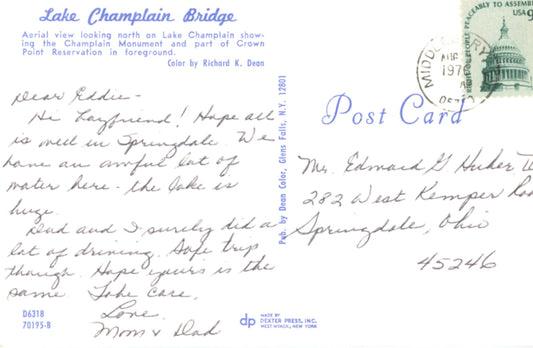 Lake Champlain Bridge
Aerial view looking north on Lake Champlain show-
ing the Champlain Monument and part of Crown
Point Reservation in foreground.
Color by Richard K. Dean
Dear Eddie -
Hi Layfriend! Hope all
is well in Springdale. We
have an awful lot of
water here - the lake is
huge.
Dad and I surely did a
lot of driving. Safe trip
though. Hope yours is the
same. Take care.
Love
Mom & Dad
D6318
70195-B
Pub. by Dean Color, Glens Falls, N.Y. 12801
dp
MADE BY
DEXTER PRESS, INC.
WEST NYACK, NEW YORK
PEACEABLY TO ASSEMB
USA 9
MIDD
RY
197
057
Post Card
Mr. Edward G
282 West Kemper Roa
Springdale, Ohio
45246